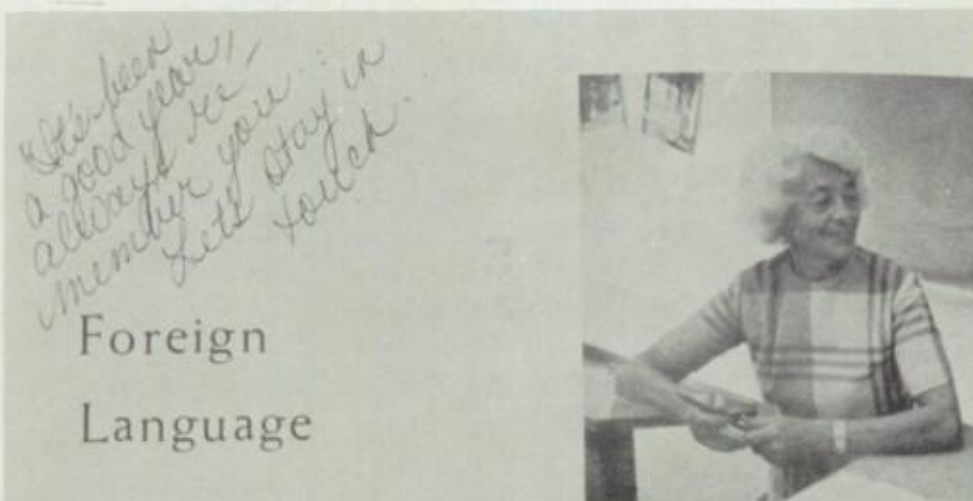 It's been
a good year,
always re-
member you
Lets stay in
touch.
Foreign
Language